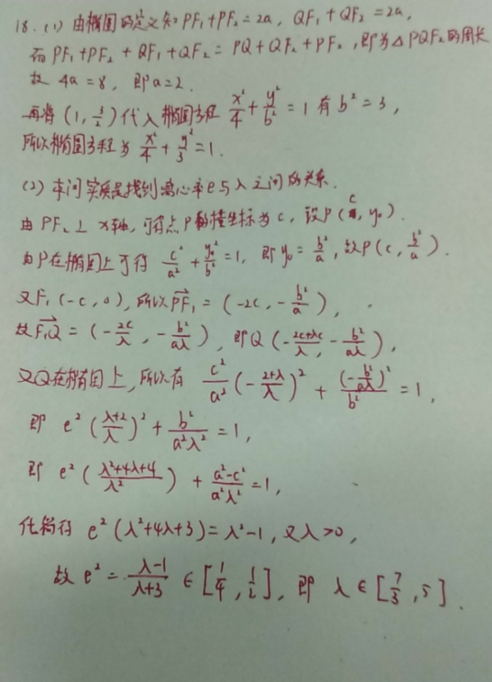 18. (1) 由椭圆的定义知 PF₁+PF₂=2a, QF₁+QF₂=2a,
而 PF₁+PF₂+QF₁+QF₂=PQ+QF₂+PF₂, 即为△PQF₂的周长
故 4a=8, 即a=2.
再将 (1, 3/2) 代入椭圆方程 x²/4+y²/b²=1 有 b²=3,
所以椭圆方程为 x²/4+y²/3=1.
(2) 本问实质是找到离心率e与λ之间的关系.
由 PF₂⊥x轴, 可得点P 横坐标为 c, 设P(c, y₀).
由P在椭圆上可得 c²/a²+y₀²/b²=1, 即 y₀=b²/a, 故P(c, b²/a).
又F₁(-c, 0), 所以PF₁=(-2c, -b²/a),
故F₁Q=(-2c/λ, -b²/aλ), 即Q(-2c+λc/λ, -b²/aλ),
又Q在椭圆上, 所以有 c²/a²(-2+λ/λ)²+(-b²/aλ)²/b²=1,
即 e²(λ+2/λ)²+b²/a²λ²=1,
即 e²(λ²+4λ+4/λ²)+a²-c²/a²λ²=1,
化简得 e²(λ²+4λ+3)=λ²-1, 又λ>0,
故 e²=λ-1/λ+3∈[1/4, 1/2], 即 λ∈[7/3, 5].